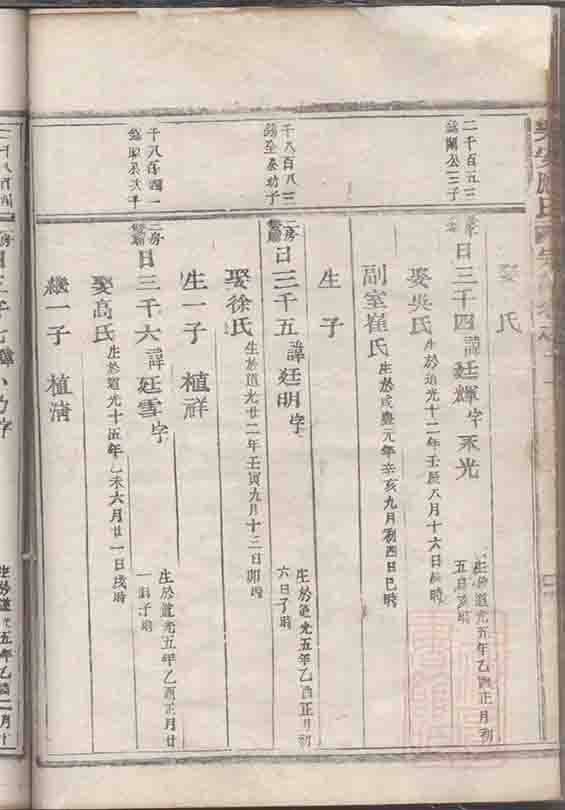 娶 氏
二千百五三
日三千四諱廷輝字禾光
生於道光五年乙酉正月初
五日亥時
娶吳氏生於道光十二年壬辰八月十六日時
副室崔氏生於咸豐元年辛亥九月初四日巳時
生 子
千八百八三
二房
日三千五諱廷明字
生於道光五年乙酉正月初
六日子時
娶徐氏生於道光廿二年壬寅九月十三日卯時
生一子 植祥
千八百四一
二房
日三千六諱廷雪字
生於道光五年乙酉正月廿
一日子時
娶高氏生於道光十五年乙未六月廿一日戌時
繼一子 植清
二千八百四
房
日三千七諱
字
生於道光五年乙酉二月十